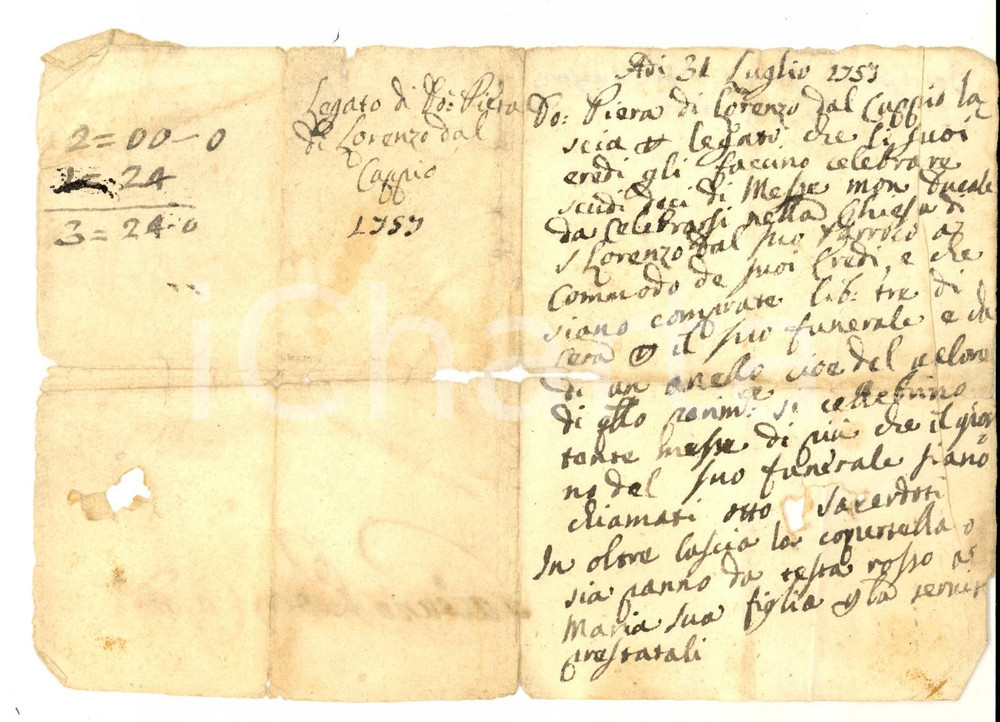 2=00-0
24
3=24-0
Legato di Do: Piera
di Lorenzo dal
Cappio
1757
Adi 31 Luglio 1757
Do: Piera di Lorenzo dal Cappio la
scia legati, che li suoi
eredi gli facino celebrare
scudi deci di Messe mon ducale
da celebrarsi nella Chiesa di
S Lorenzo dal suo Parroco a
Commodo de suoi Eredi, e che
siano comprate lib: tre di
cera il suo funerale e
di un anello cioe del valore
di si cellebrino
tante messe di più che il gior
no del suo funerale siano
chiamati otto Sacerdoti
In oltre lascia la copertella o
sia panno da testa rosso a
Maria sua figlia la servitù
prestatali
iCharta